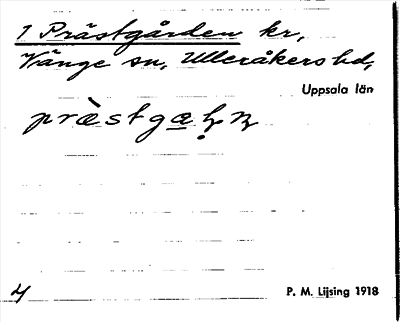 1 Prästgården kr,
Vänge sn, Ulleråkers hd,
Uppsala län
prästga
4
P. M. Lijsing 1918